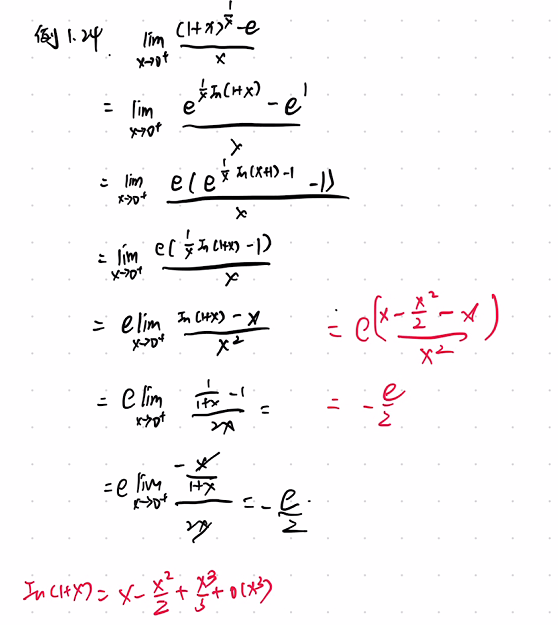 例1.24. lim x→0⁺ ((1+x)^(1/x) - e)/x
= lim x→0⁺ (e^(1/x ln(1+x)) - e^1)/x
= lim x→0⁺ e(e^(1/x ln(x+1) - 1) - 1)/x
= lim x→0⁺ e(1/x ln(1+x) - 1)/x
= e lim x→0⁺ (ln(1+x) - x)/x² = e((x - x²/2 - x)/x²)
= e lim x→0⁺ (1/(1+x) - 1)/2x = = -e/2
= e lim x→0⁺ (-x/(1+x))/2x = -e/2.
ln(1+x) = x - x²/2 + x³/3 + o(x³)